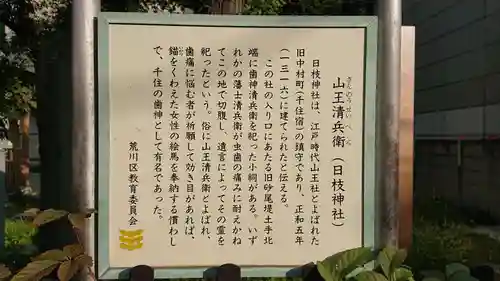 さんのうせいべえ
山王清兵衛（日枝神社）
日枝神社は、江戸時代山王社とよばれた
旧中村町（千住宿）の鎮守であり、正和五年
（一三一六）に建てられたと伝える。
この社の入り口にあたる旧砂尾堤土手北
端に歯神清兵衛を祀った小祠がある。いず
れかの藩士清兵衛が虫歯の痛みに耐えかね
てこの地で切腹し、遺言によってその霊を
祀ったという。俗に山王清兵衛とよばれ、
歯痛に悩む者が祈願して効き目があれば、
錨をくわえた女性の絵馬を奉納する慣わし
で、千住の歯神として有名であった。
荒川区教育委員会